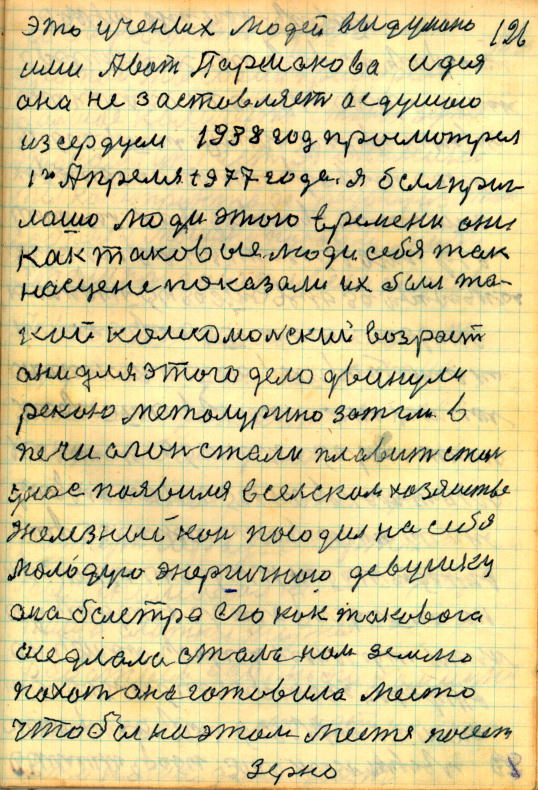 это ученых людей выдумано 126
или Авот Паршакова идея
она не заставляет а душою
из сердцем 1938 год просмотрел
1го Апреля 1977 года. я был приг
лашо люди этого времени они
как таковые люди себя так
на сцене показали их был та-
кой комсомолский возраст
они для этого дело двинули
рекою металурино зажгли в
печи огон стали плавит стал
у нас появился в селском хозяистве
железный кон посодил на себя
молодую энергичною девушку
она быстра его как таковога
аседлала стала нам землю
пахат она готовила место
чтобы на этом месте посеят
зерно